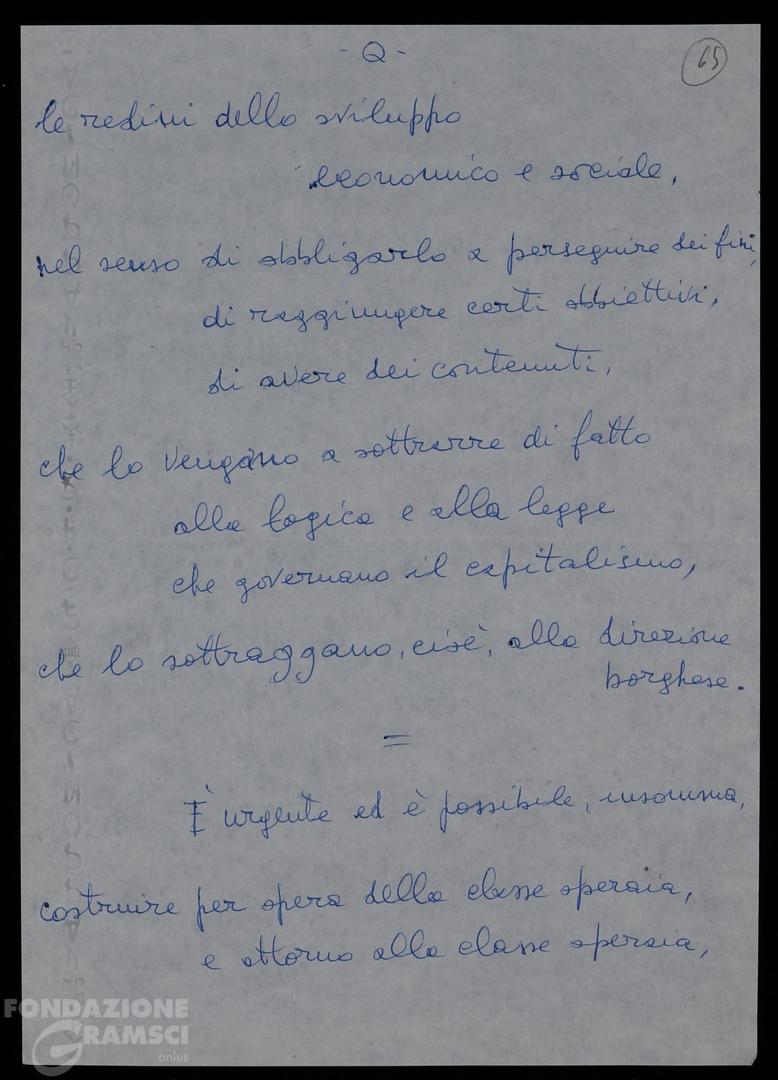 - Q -
65
le redini dello sviluppo
economico e sociale,
nel senso di obbligarlo a perseguire dei fini,
di raggiungere certi obbiettivi,
di avere dei contenuti,
che lo vengano a sottrarre di fatto
alla logica e alla legge
che governano il capitalismo,
che lo sottraggano, cioè, alla direzione
borghese.
=
È urgente ed è possibile, insomma,
costruire per opera della classe operaia,
e attorno alla classe operaia,
FONDAZIONE
GRAMSCI
onlus